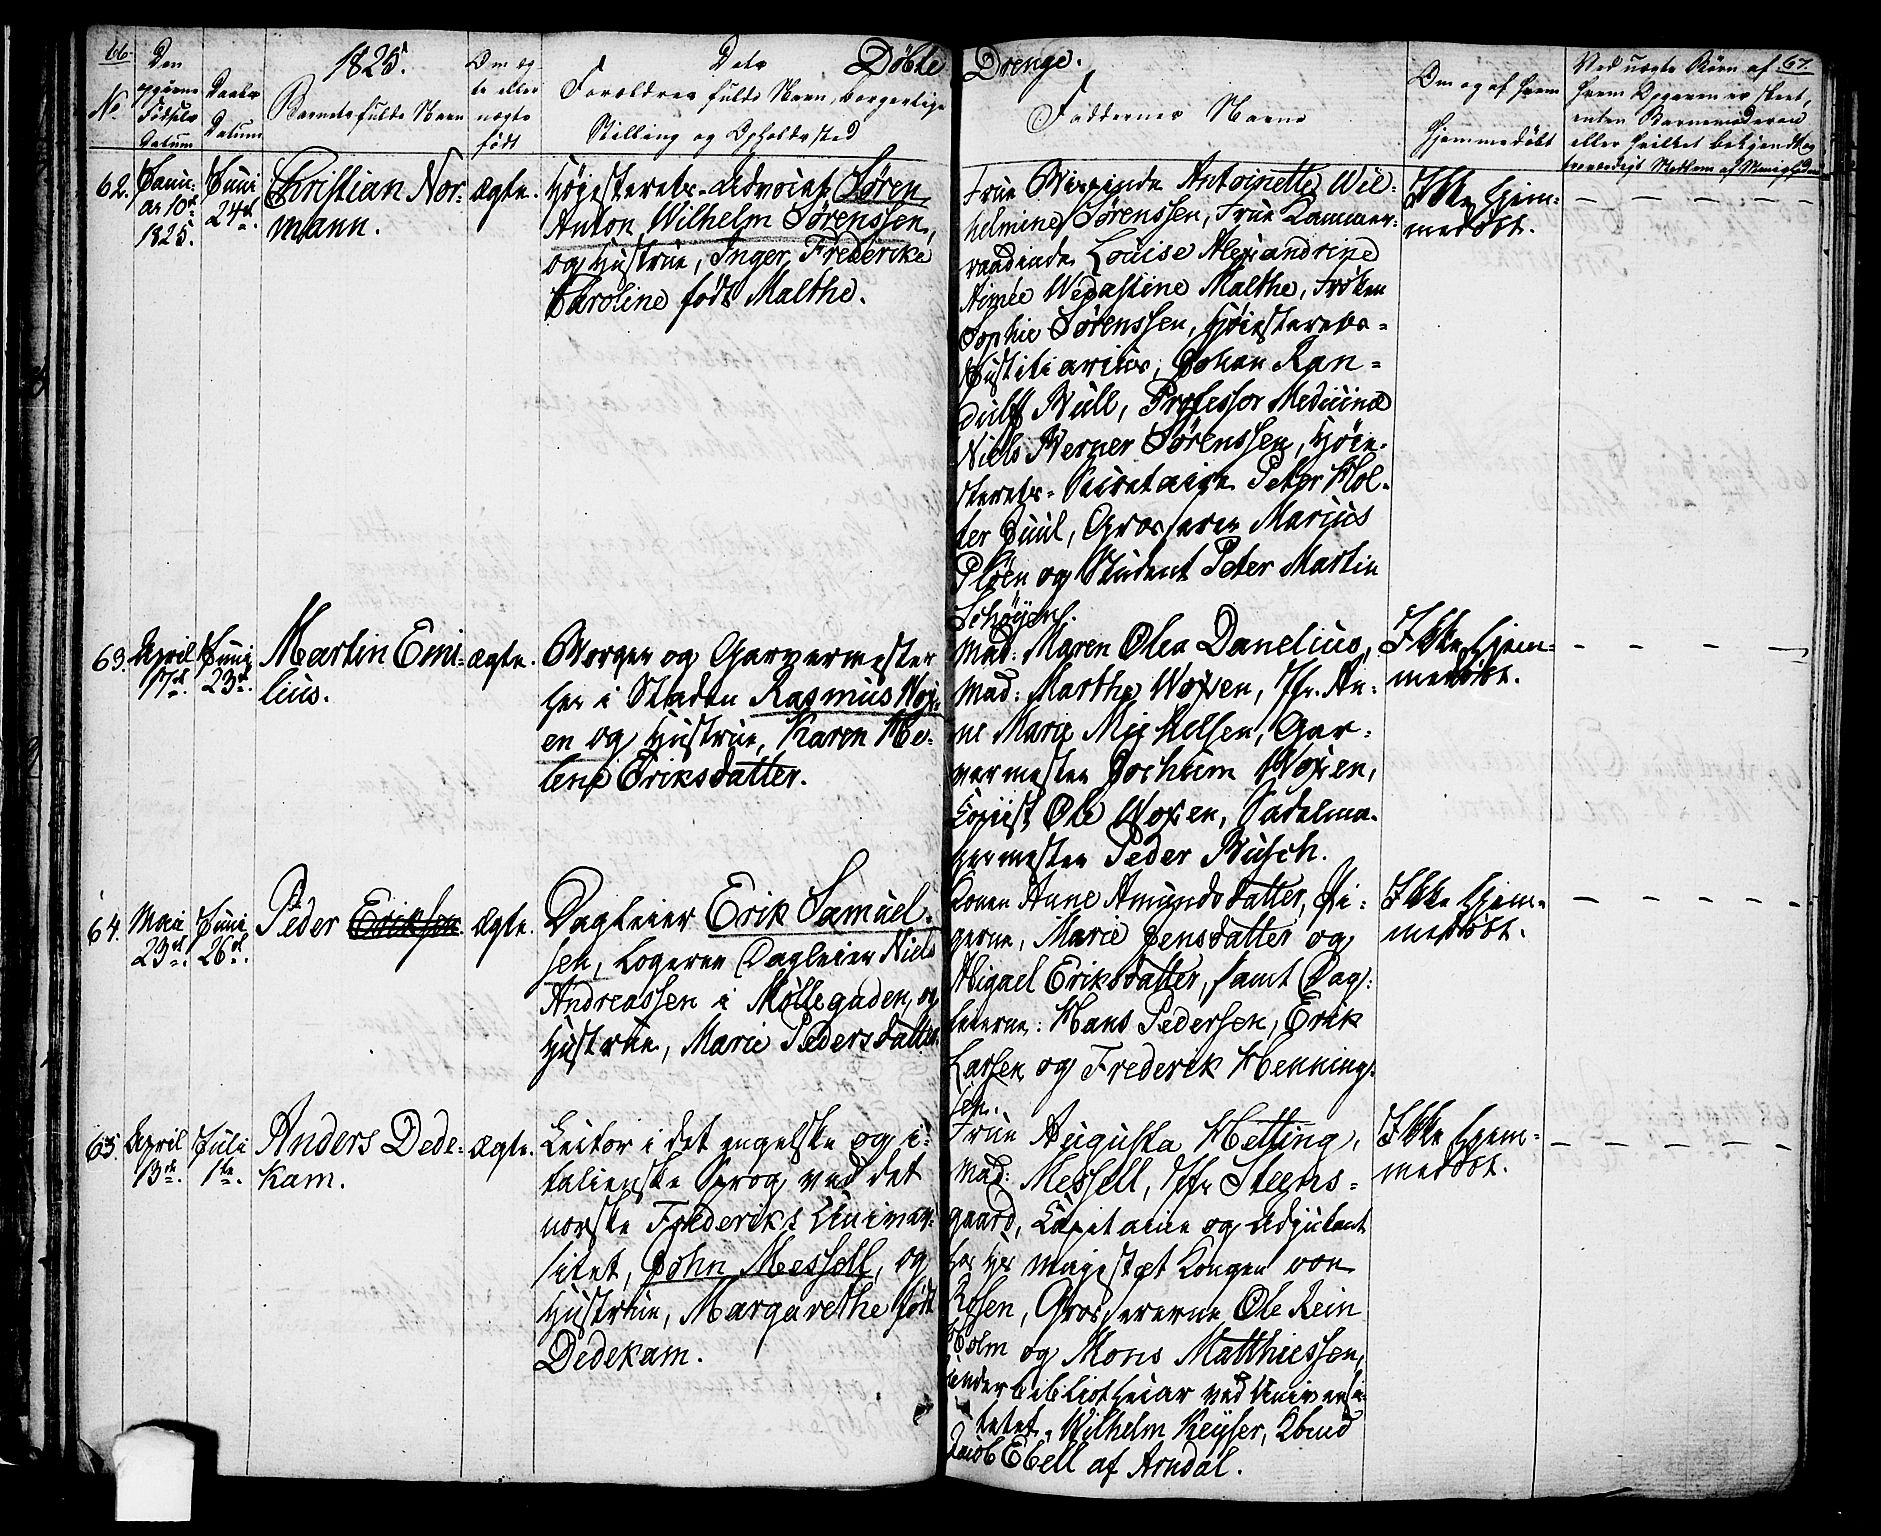 66.
1825.
Døbte
Drenge.
67.
No
Den opgivne Fødsels Datum
Daabs Datum
Barnets fulde Navn
Om ægte eller uægte født
Dets
Forældres fulde Navn, borgerlige
Stilling og Opholdssted
Faddernes Navne
Om og af hvem
hjemmedøbt
Ved uægte Børn af
hvem Opgaven er skeet,
enten Barnemoderen
eller hvilket bekjendt og
troværdigt Medlem af Menigheden
62.
Januar 10de 1825.
Juni 24de.
Christian Nor-
mann.
ægte.
Høiesterets-Advocat, Søren
Anton Wilhelm Sørenssen,
og Hustrue, Inger Fredericke
Caroline født Malthe.
Frue Antoinette Wil-
helmine Sørenssen, Frue Kammer-
raadinde Louise Alexandrine
Aimée Malthe, Frøken
Sophie Sørenssen, Høiesterets-
Justitiarius, Johan Ran-
dulf Bull, Professor Medicinæ
Niels Werner Sørenssen, Høie-
sterets-Secretaire Peter Hol-
ter Juul, Grosserer Marius
Pløen og Student Peter Martin
Schøyen.
Ikke hjem-
medøbt.
63.
April 17de.
Juni 23de.
Martin Emi-
lius.
ægte.
Borger og Garvermester
her i Staden Rasmus Wox-
en og Hustrue, Karen He-
lene Eriksdatter.
Mad: Maren Olea Danelius,
Mad: Marthe Woxen, Jfr. An-
ne Marie Michelsen, Gar-
vermester Jochum Woxen,
Copiist Ole Woxen, Sadelma-
germester Peder Busch.
Ikke hjem-
medøbt.
64.
Mai 23de.
Juni 26de.
Peder Eriksen
ægte.
Dagleier Erik Samuel-
sen, logerer Dagleier Niels
Andreassen i Møllegaden, og
Hustrue, Marie Pedersdatter
Konen Anne Amundsdatter, Pi-
gerne, Marie Jensdatter og
Abigael Eriksdatter, samt Dag-
leierne: Hans Pedersen, Erik
Larsen og Frederik Henning-
sen.
Ikke hjem-
medøbt.
65.
April 13de.
Juli 1ste.
Anders Dede-
kam.
ægte.
Lector i det engelske og i-
talienske Sprog ved det
norske Frederiks Univer-
sitet, John Messell, og
Hustrue, Margarethe født
Dedekam.
Frue Augusta Hetting,
Mad: Messell, Jfr Steens-
gaard, Capitaine og Adjutant
hos Hs Majestæt Kongen von
Rosen, Grossererne Ole Rein
Holm og Mons Matthiessen,
Underbibliothecar ved Universi-
tetet, Wilhelm Keyser,
Jacob Ebell af Arndal.
Ikke hjem-
medøbt.